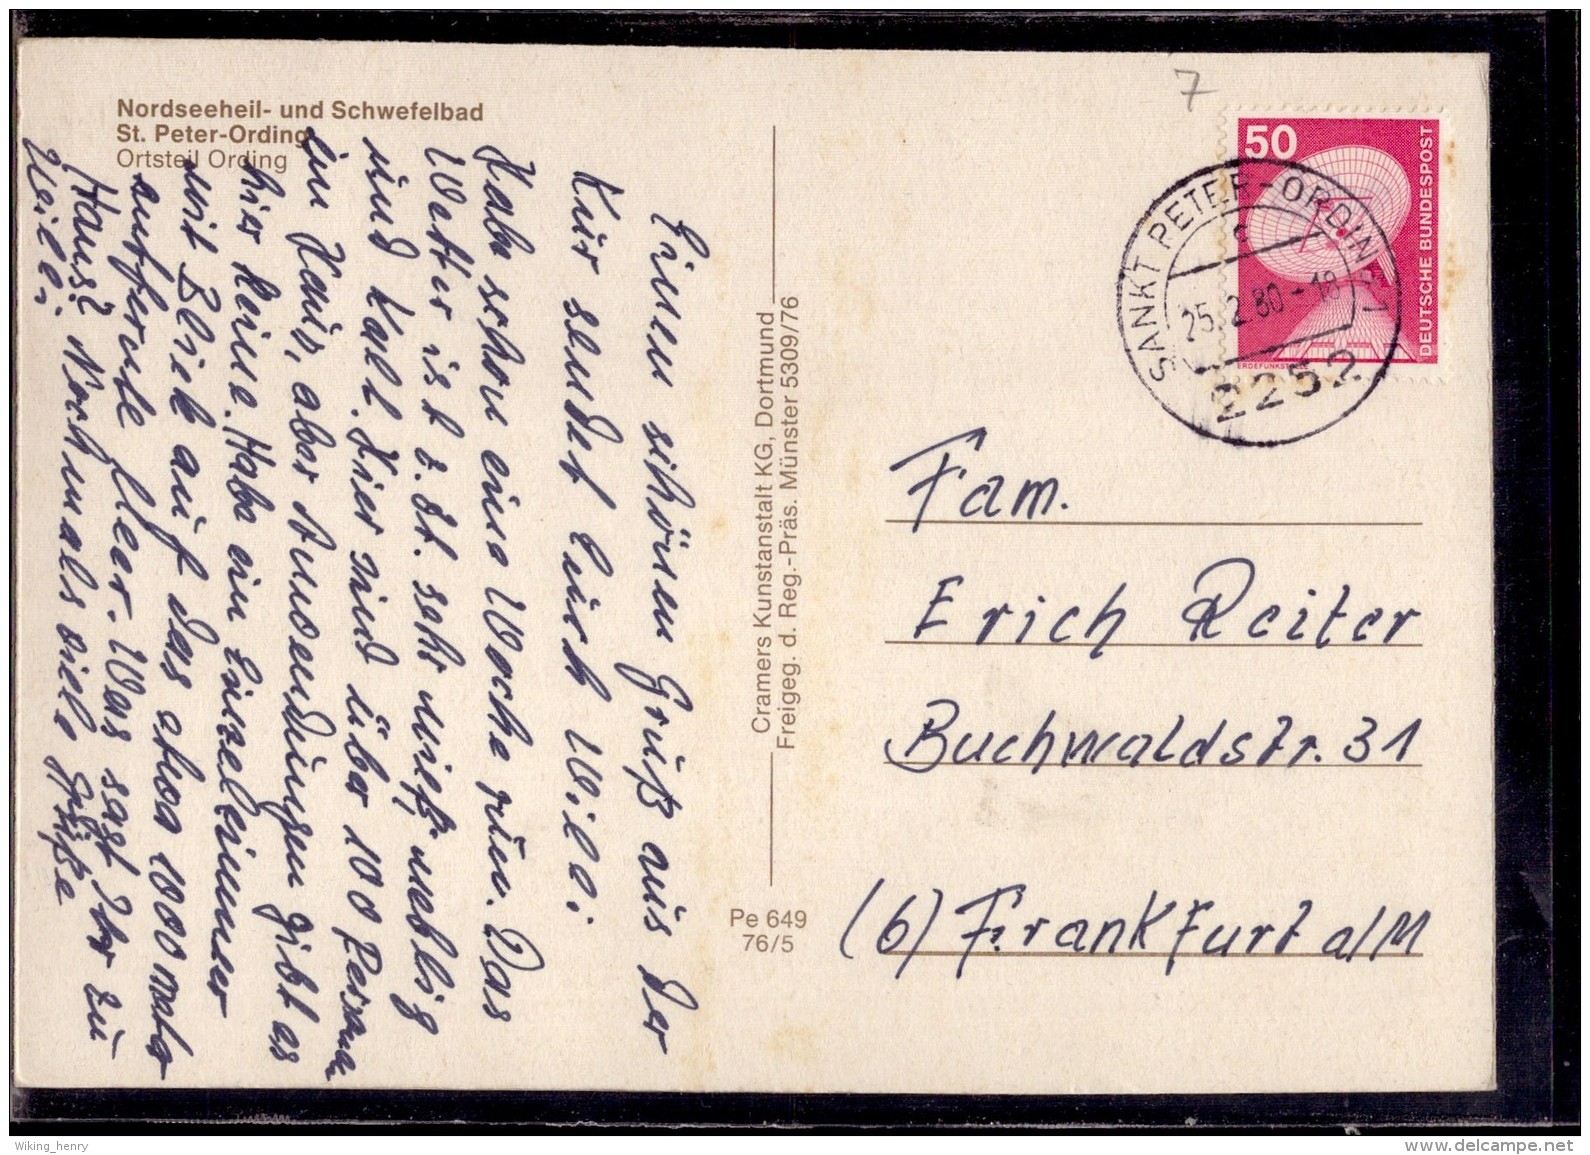 Nordseeheil- und Schwefelbad
St. Peter-Ording
Ortsteil Ording
Einen schönen Gruß aus der
Kur sendet Euch Willi
Habe schon eine Woche rum. Das
Wetter ist z. Zt. sehr mieß, neblig
und kalt. Hier sind über 100 Personen
im Haus, aber Anwendungen gibt es
hier keine. Habe ein Einzelzimmer
mit Blick auf das etwa 1000 meter
entfernte Meer. Was sagt Ihr zu
Hans? Nochmals viele Grüße
Willi
Cramers Kunstanstalt KG, Dortmund
Freigeg. d. Reg.-Präs. Münster 5309/76
Pe 649
76/5
7
50
DEUTSCHE BUNDESPOST
ERDEFUNKSTELLE
SANKT PETER-ORDING 1
c
25.2.80-18
2252
Fam.
Erich Reiter
Buchwaldstr. 31
(6) Frankfurt a/M
Wiking_henry
www.delcampe.net